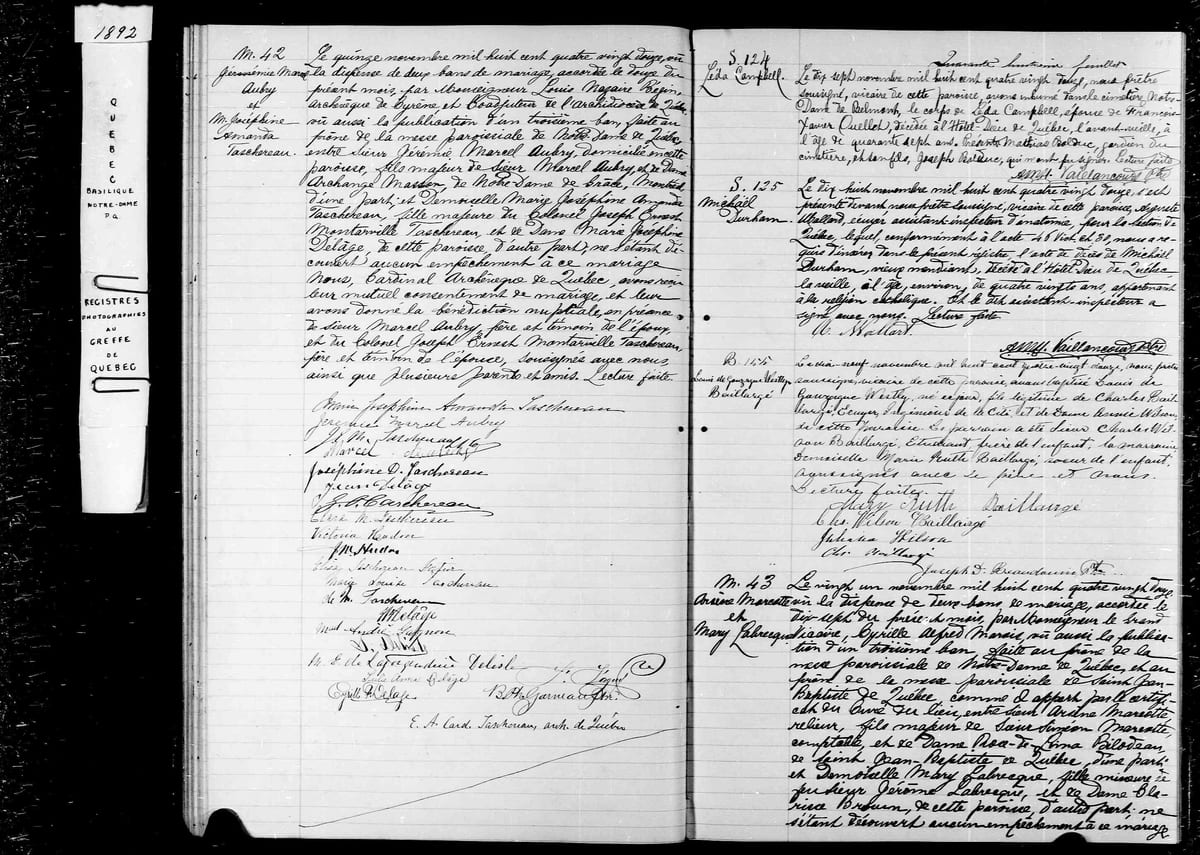 1892
QUEBEC
BASILIQUE
NOTRE-DAME
P.Q.
REGISTRES
PHOTOGRAPHIES
AU
GREFFE
DE
QUEBEC
M. 42
Jérémie Marcel
Aubry
et
M. Joséphine
Amanda
Taschereau
Le quinze novembre mil huit cent quatre vingt douze, vu
la dispense de deux bans de mariage, accordée le douze du
présent mois, par Monseigneur Louis Nazaire Bégin,
Archevêque de Cyrène et Coadjuteur de l'Archidiocèse de Québec,
vu aussi la publication d'un troisième ban, faite au
prône de la messe paroissiale de Notre Dame de Québec,
entre sieur Jérémie Marcel Aubry, domicilié en cette
paroisse, fils majeur de sieur Marcel Aubry, et de Dame
Archange Masson, de Notre Dame de Grace, Montréal
d'une part; et Demoiselle Marie Joséphine Amanda
Taschereau, fille majeure du Colonel Joseph Ernest
Montarville Taschereau, et de Dame Marie Joséphine
Delâge, de cette paroisse, d'autre part; ne s'étant dé-
couvert aucun empêchement à ce mariage
Nous, Cardinal Archevêque de Québec, avons reçu
leur mutuel consentement de mariage, et leur
avons donné la bénédiction nuptiale, en présence
de sieur Marcel Aubry, père et témoin de l'époux,
et du Colonel Joseph Ernest Montarville Taschereau,
père et témoin de l'épouse, soussignés avec nous
ainsi que plusieurs parents et amis. Lecture faite
Marie Joséphine Amanda Taschereau
Jérémie Marcel Aubry
J. E. M. Taschereau
Marcel Aubry
Joséphine D. Taschereau
Jean Delâge
Taschereau
M. Taschereau
Victoria Hudon
J. M. Hudon
Taschereau
Marie Louise Taschereau
de M. Taschereau
Delâge
Mad. André Gagnon
M. E. de Lapagendière Delisle
Julie Anna Delâge
Cyrille Delage B. Ph. Garneau Ptre
E. A. Card. Taschereau, arch. de Québec
Quarante huitième feuillet
S. 124
Léda Campbell.
Le dix sept novembre mil huit cent quatre vingt douze, nous prêtre
soussigné, vicaire de cette paroisse, avons inhumé dans le cimetière Notre-
Dame de Belmont, le corps de Léda Campbell, épouse de François-
Xavier Ouellet, décédée à l'Hôtel-Dieu de Québec, l'avant-veille, à
l'âge de quarante sept ans, Présents Mathias Bolduc, gardien du
cimetière, et son fils, Joseph Bolduc, qui n'ont pu signer. Lecture faite
Vaillancourt Ptre
S. 125
Michaël
Durham.
Le dix huit novembre mil huit cent quatre vingt douze, s'est
présenté devant nous prêtre soussigné, vicaire de cette paroisse, Auguste
Mallard, écuyer assistant inspecteur d'anatomie, pour la section de
Québec, lequel, conformément à l'acte 46 Vict. et 30, nous a re-
quis d'insérer dans le présent registre, l'acte de décès de Michaël
Durham, veuf mendiant, décédé à l'Hôtel Dieu de Québec
la veille, à l'âge, environ, de quatre vingts ans, appartenant
à la religion catholique. Et le dit assistant-inspecteur a
signé avec nous. Lecture faite
A. Mallard
Vaillancourt Ptre
B. 155
Louis de Gonzague Westley
Baillargé
Le dix neuf novembre mil huit cent quatre-vingt douze, nous prêtre
soussigné, vicaire de cette paroisse, avons baptisé Louis de
Gonzague Westley, né ce jour, fils légitime de Charles Bail-
largé, Ecuyer, Ingénieur de la Cité, et de Dame Annie Wilson,
de cette paroisse. Le parrain a été Sieur Charles Wil-
son Baillargé, Etudiant, frère de l'enfant, la marraine
Demoiselle Marie Ruth Baillargé, soeur de l'enfant,
soussignés avec le père et nous.
Lecture faite.
Mary Ruth Baillargé
Chs. Wilson Baillairgé
Wilson
Chs. Baillairgé
Joseph D. Beaudoin Ptre
M. 43
Arsène Marcotte
et
Mary Labrecque
Le vingt un novembre mil huit cent quatre vingt douze,
vu la dispense de deux bans de mariage, accordée le
dix-sept du présent mois, par Monseigneur le Grand
Vicaire, Cyrille Alfred Marois, vu aussi la publica-
tion d'un troisième ban, faite au prône de la
messe paroissiale de Notre-Dame de Québec, et au
prône de la messe paroissiale de Saint Jean
Baptiste de Québec, comme il appert par le certifi-
cat du Curé du lieu, entre sieur Arsène Marcotte
relieur, fils majeur de Sieur Siméon Marcotte,
comptable, et de Dame Rose-de-Lima Bilodeau,
de Saint Jean-Baptiste de Québec, d'une part;
et Demoiselle Mary Labrecque, fille mineure de
feu sieur Jérome Labrecque, et de Dame Cla-
risse Brown, de cette paroisse, d'autre part; ne
s'étant découvert aucun empêchement à ce mariage